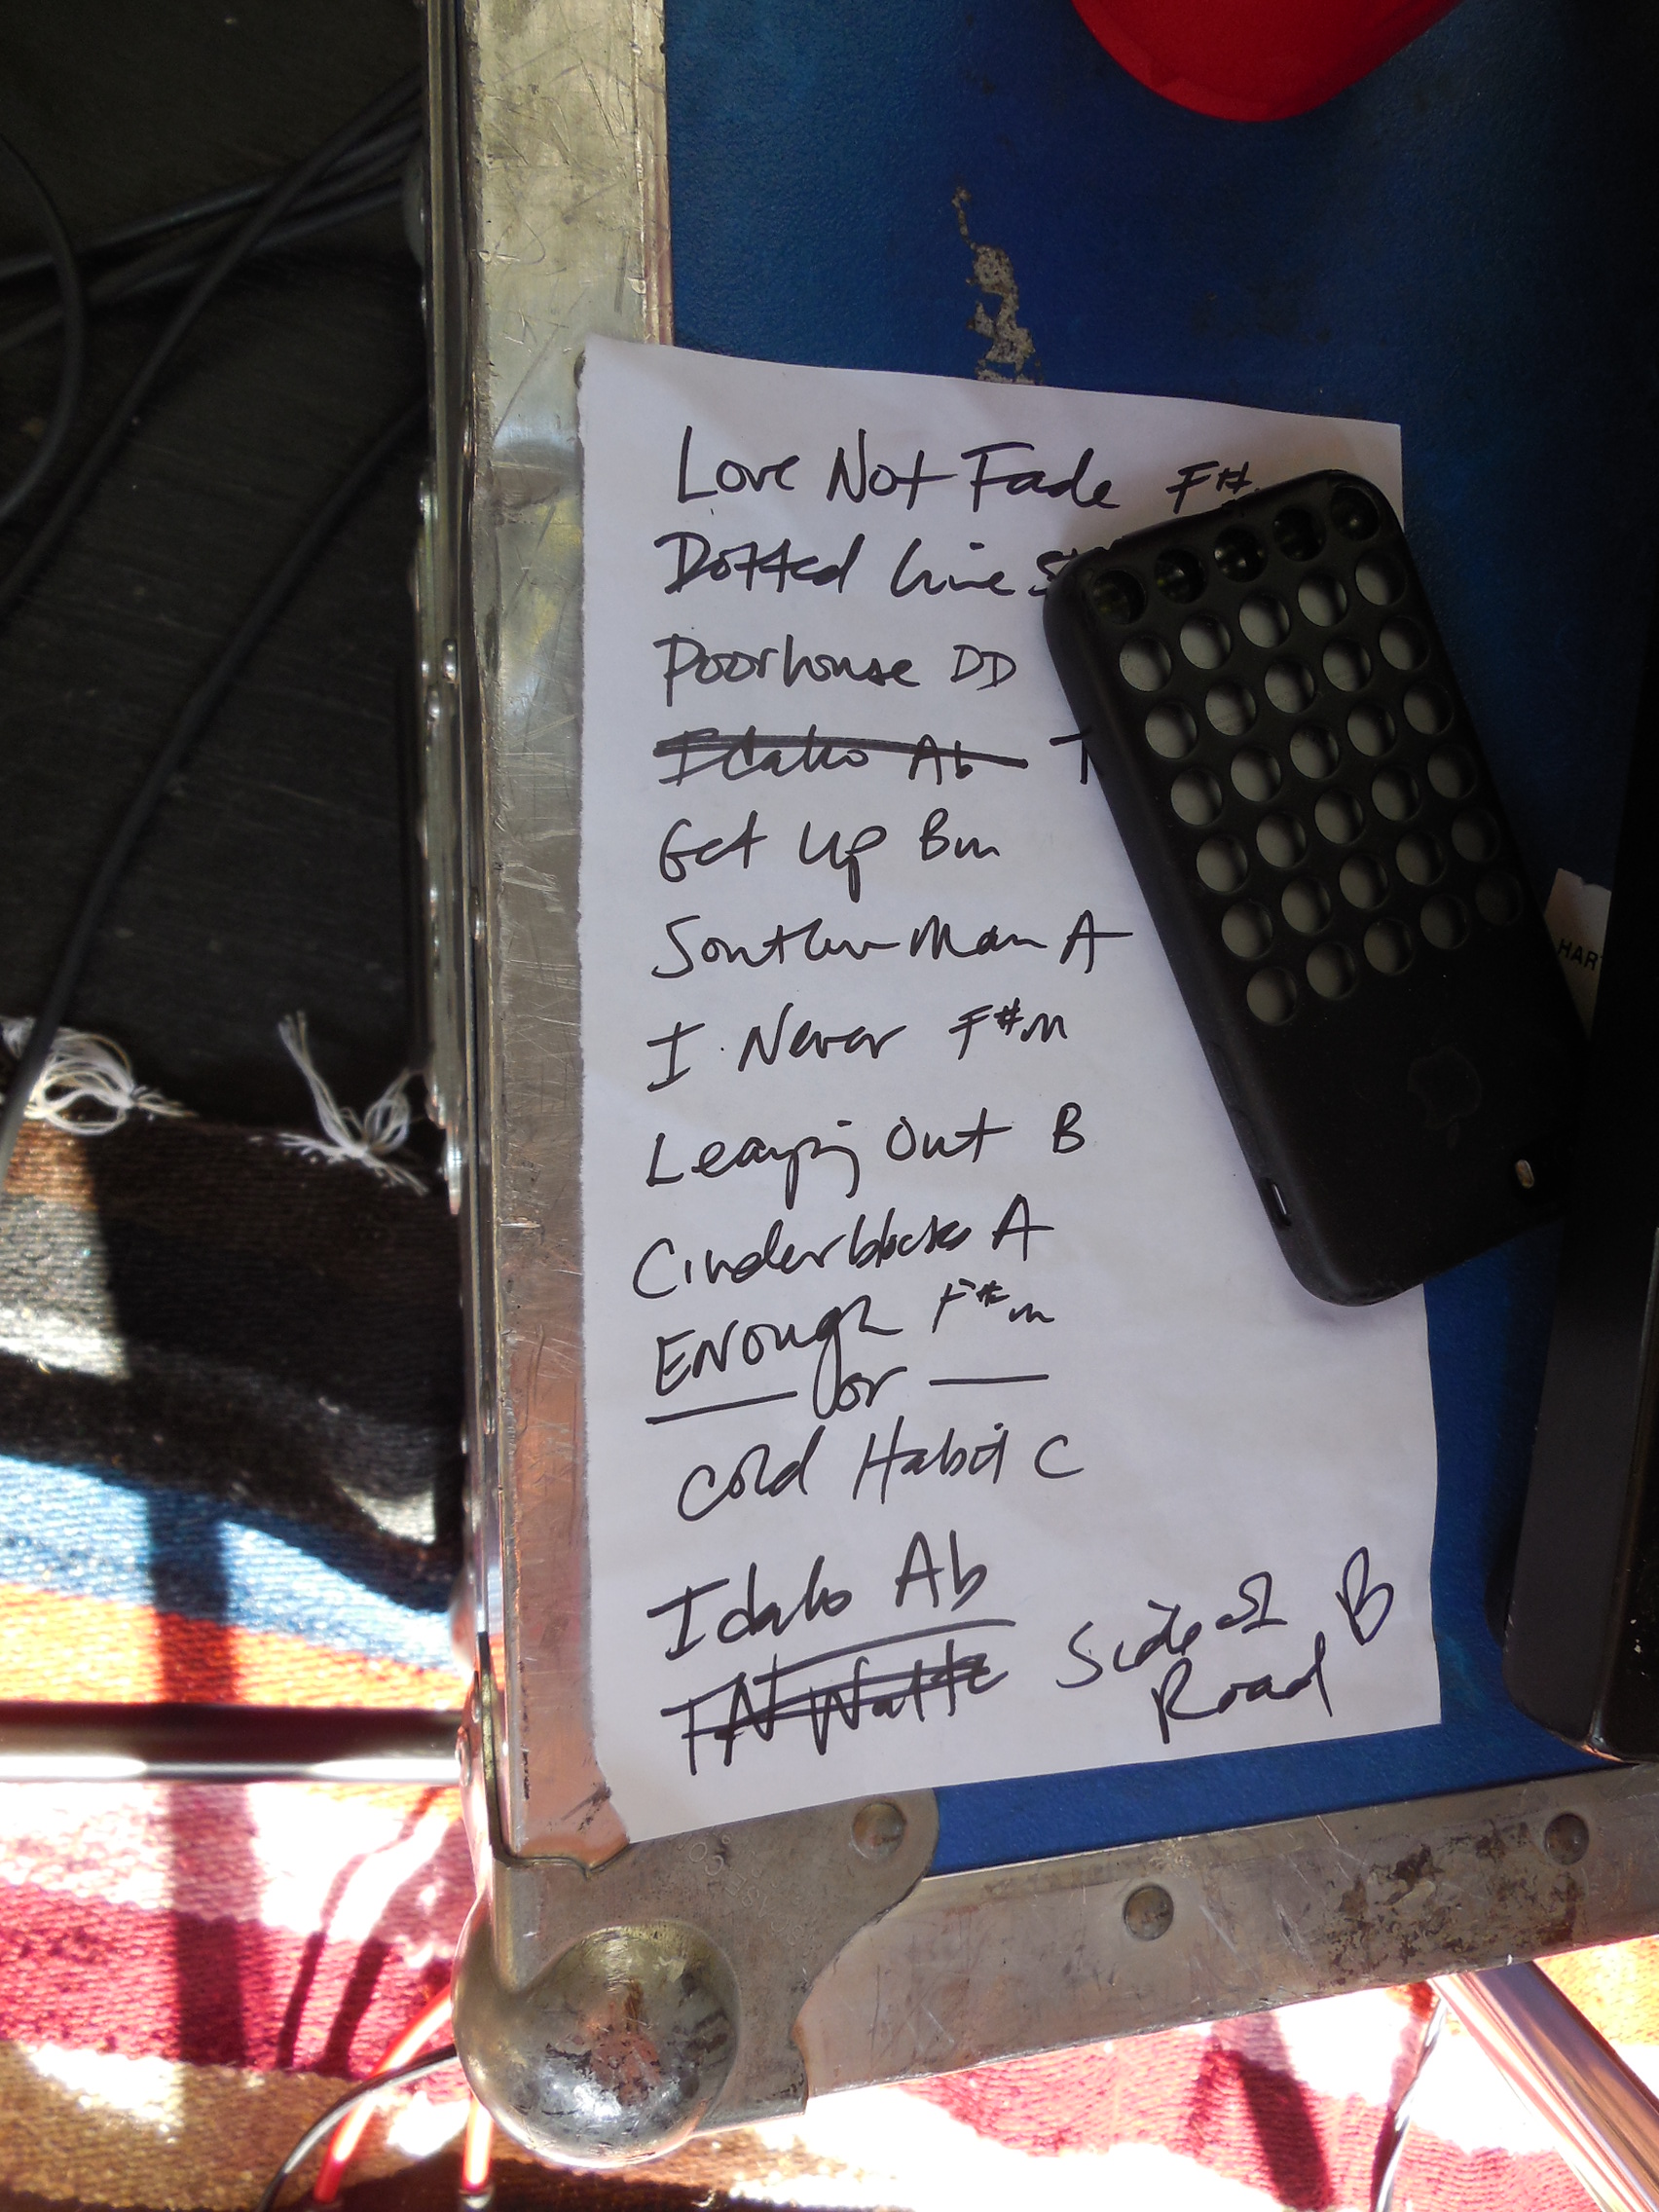 Love Not Fade F#
Dotted Line
Poorhouse DD
Idaho Ab T
Get Up Bm
Southern Man A
I Never F#m
Leaping Out B
Cinderblocks A
Enough F#m
— or —
Cold Habit C
Idaho Ab
Side of Road B
HART